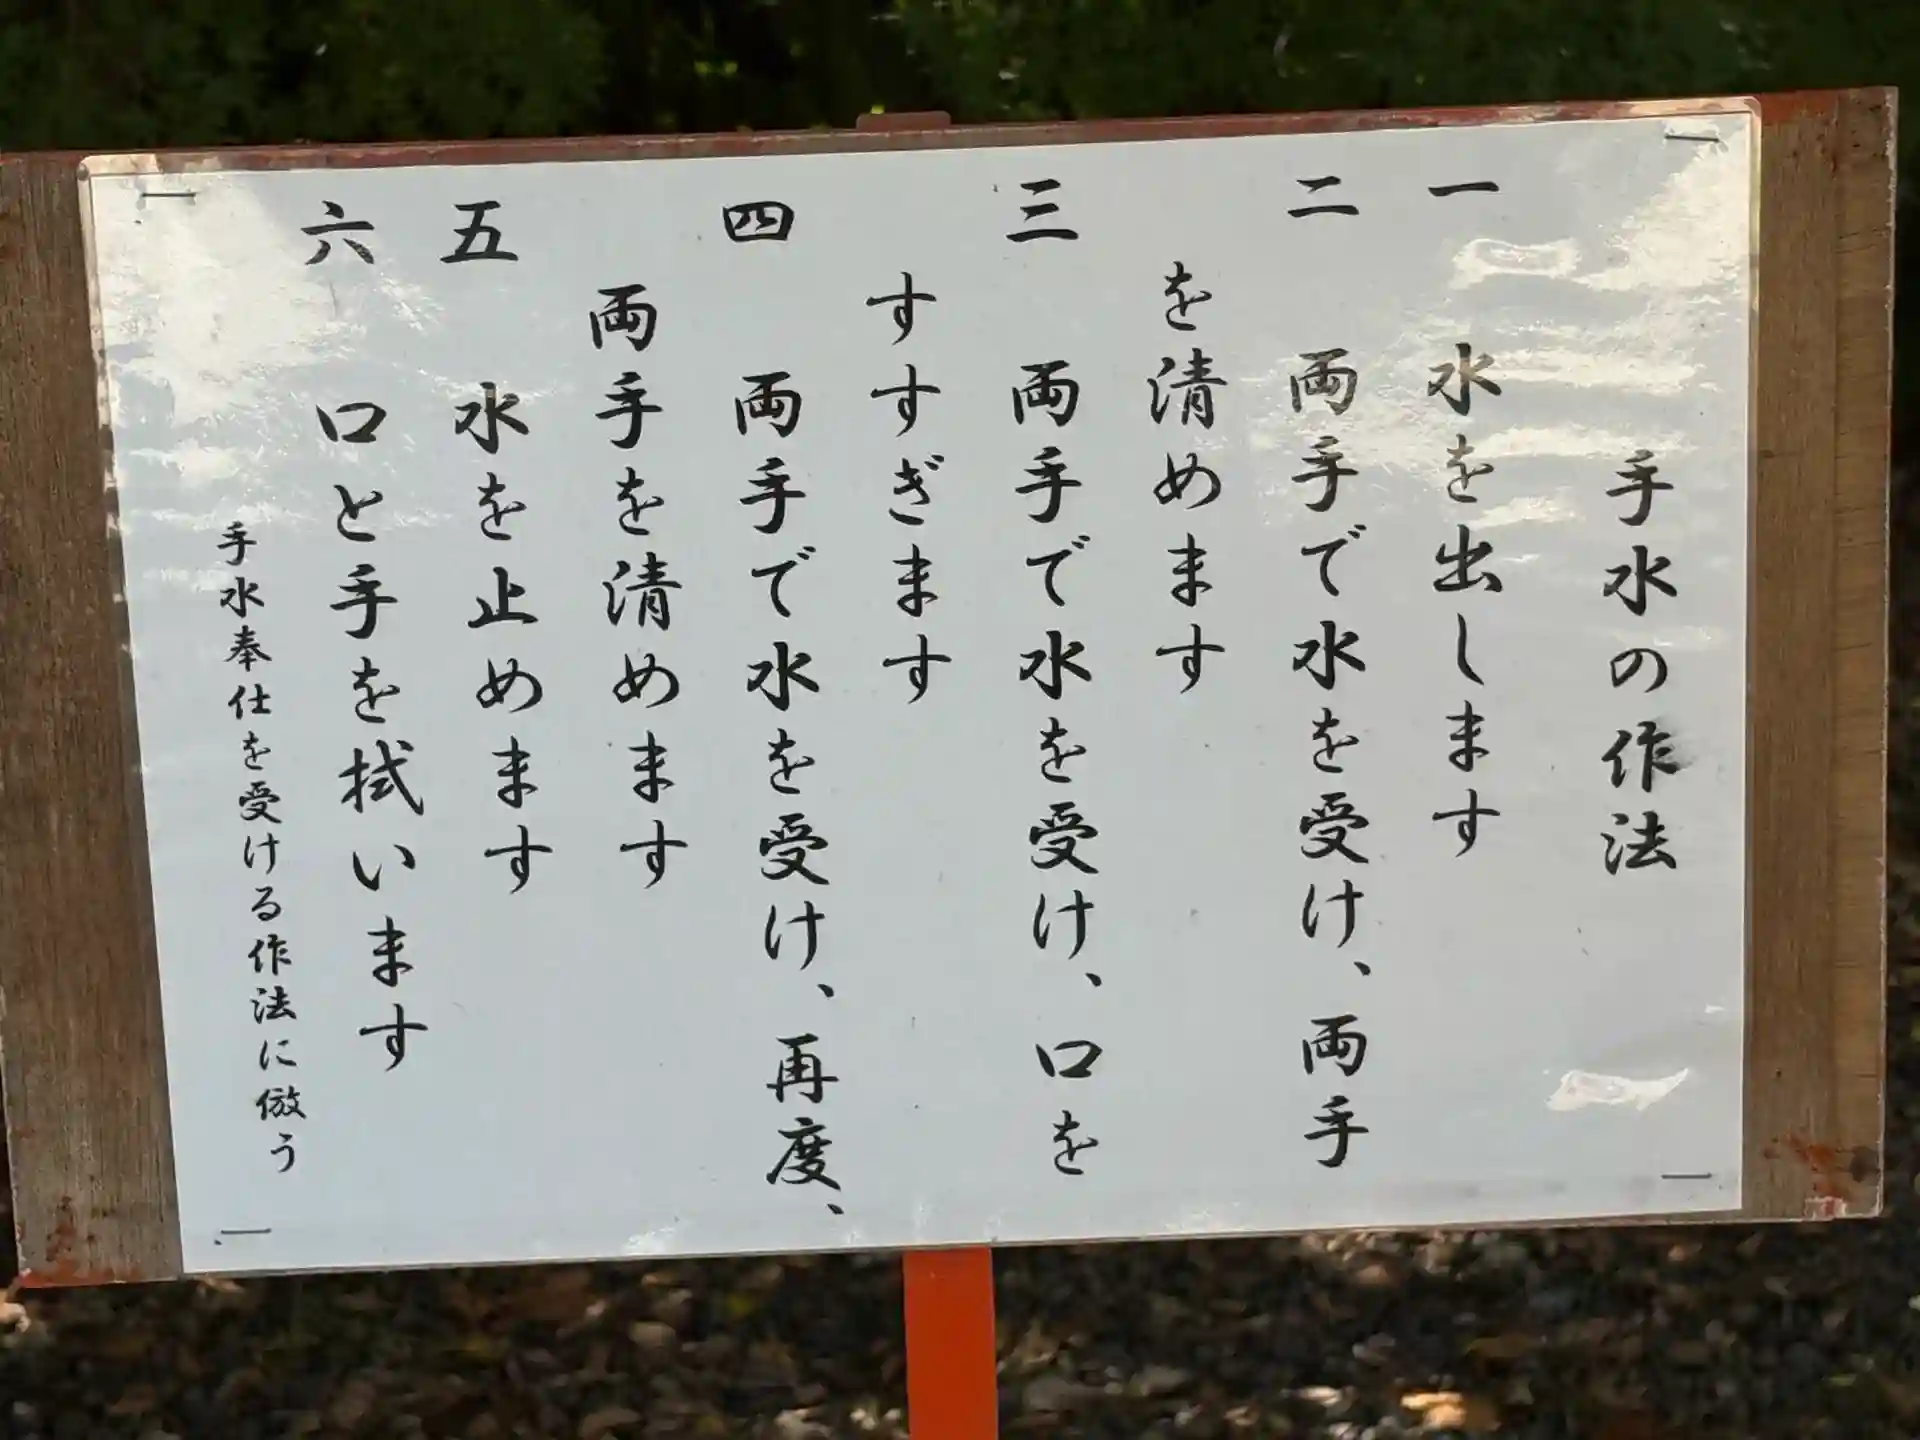 手水の作法
一 水を出します
二 両手で水を受け、両手
を清めます
三 両手で水を受け、口を
すすぎます
四 両手で水を受け、再度、
両手を清めます
五 水を止めます
六 口と手を拭います
手水奉仕を受ける作法に倣う